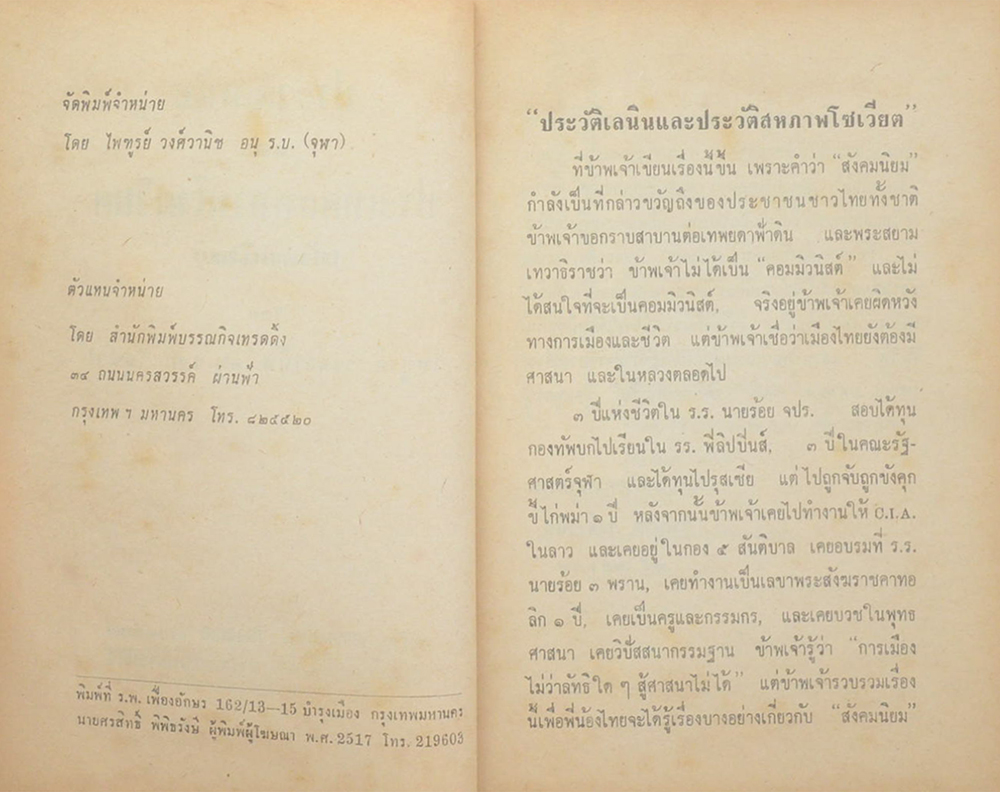 จัดพิมพ์จำหน่าย
โดย ไพฑูรย์ วงศ์วานิช อนุ ร.บ. (จุฬา)
ตัวแทนจำหน่าย
โดย สำนักพิมพ์บรรณกิจเทรดดิ้ง
๓๔ ถนนนครสวรรค์ ผ่านฟ้า
กรุงเทพ ฯ มหานคร โทร. ๘๒๕๕๒๐
พิมพ์ที่ ร.พ. เฟื่องอักษร 162/13—15 บำรุงเมือง กรุงเทพมหานคร
นายศรสิทธิ์ พิพิธรังษี ผู้พิมพ์ผู้โฆษณา พ.ศ. 2517 โทร. 219603
“ประวัติเลนินและประวัติสหภาพโซเวียต”
ที่ข้าพเจ้าเขียนเรื่องนี้ขึ้น เพราะคำว่า “สังคมนิยม”
กำลังเป็นที่กล่าวขวัญถึงของประชาชนชาวไทยทั้งชาติ
ข้าพเจ้าขอกราบสาบานต่อเทพยดาฟ้าดิน และพระสยาม
เทวาธิราชว่า ข้าพเจ้าไม่ได้เป็น “คอมมิวนิสต์” และไม่
ได้สนใจที่จะเป็นคอมมิวนิสต์, จริงอยู่ข้าพเจ้าเคยผิดหวัง
ทางการเมืองและชีวิต แต่ข้าพเจ้าเชื่อว่าเมืองไทยยังต้องมี
ศาสนา และในหลวงตลอดไป
๓ ปีแห่งชีวิตใน ร.ร. นายร้อย จปร. สอบได้ทุน
กองทัพบกไปเรียนใน รร. ฟิลิปปินส์, ๓ ปีในคณะรัฐ-
ศาสตร์จุฬา และได้ทุนไปรุสเซีย แต่ไปถูกจับถูกขังคุก
ขี้ไก่พม่า ๑ ปี หลังจากนั้นข้าพเจ้าเคยไปทำงานให้ C.I.A.
ในลาว และเคยอยู่ในกอง ๕ สันติบาล เคยอบรมที่ ร.ร.
นายร้อย ๓ พราน, เคยทำงานเป็นเลขาพระสังฆราชคาทอ
ลิก ๑ ปี, เคยเป็นครูและกรรมกร, และเคยบวชในพุทธ
ศาสนา เคยวิปัสสนากรรมฐาน ข้าพเจ้ารู้ว่า “การเมือง
ไม่ว่าลัทธิใด ๆ สู้ศาสนาไม่ได้” แต่ข้าพเจ้ารวบรวมเรื่อง
นี้เพื่อพี่น้องไทยจะได้รู้เรื่องบางอย่างเกี่ยวกับ “สังคมนิยม”